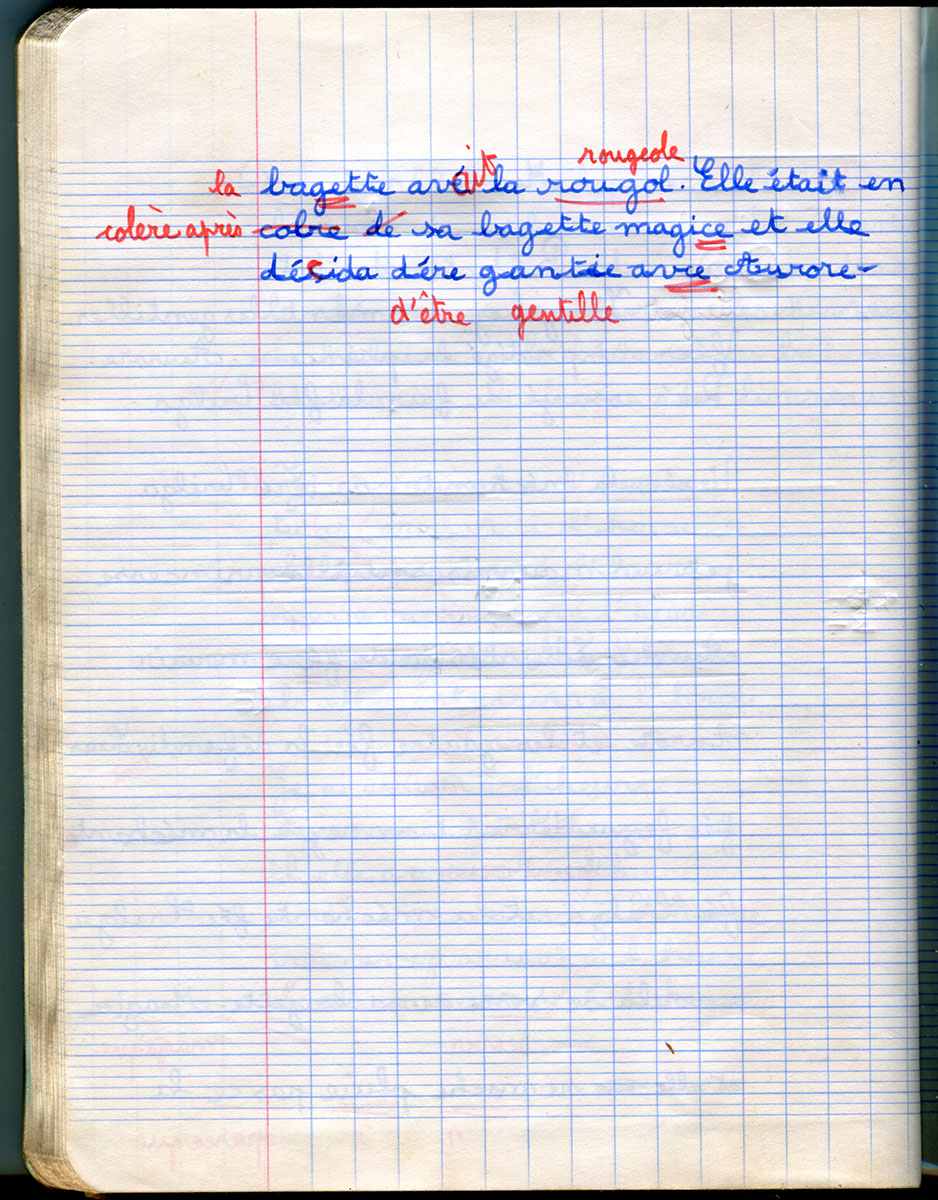 rougeole
la bagette avait la rougol. Elle était en
colère après colre de sa bagette magice et elle
désida dére gantie avre Aurore-
d'être gentille